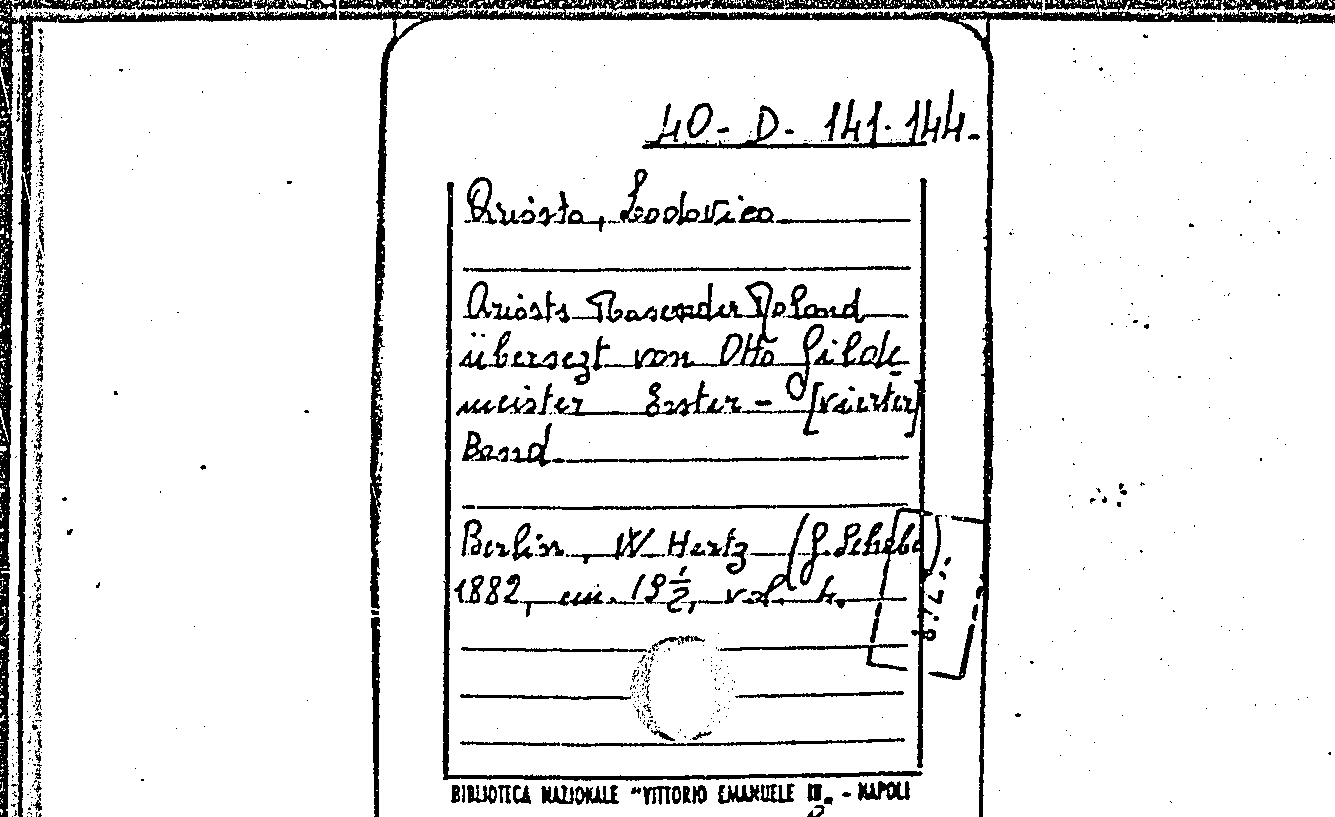 40-D-141-144-
Ariosto, Lodovico
Ariosts Rasender Roland
übersezt von Otto Gilde
meister Erster - [vierter]
Band
Berlin, W Hertz (G.
1882, in. 19½, vol. 4.
BIBLIOTECA NAZIONALE "VITTORIO EMANUELE III„ - NAPOLI